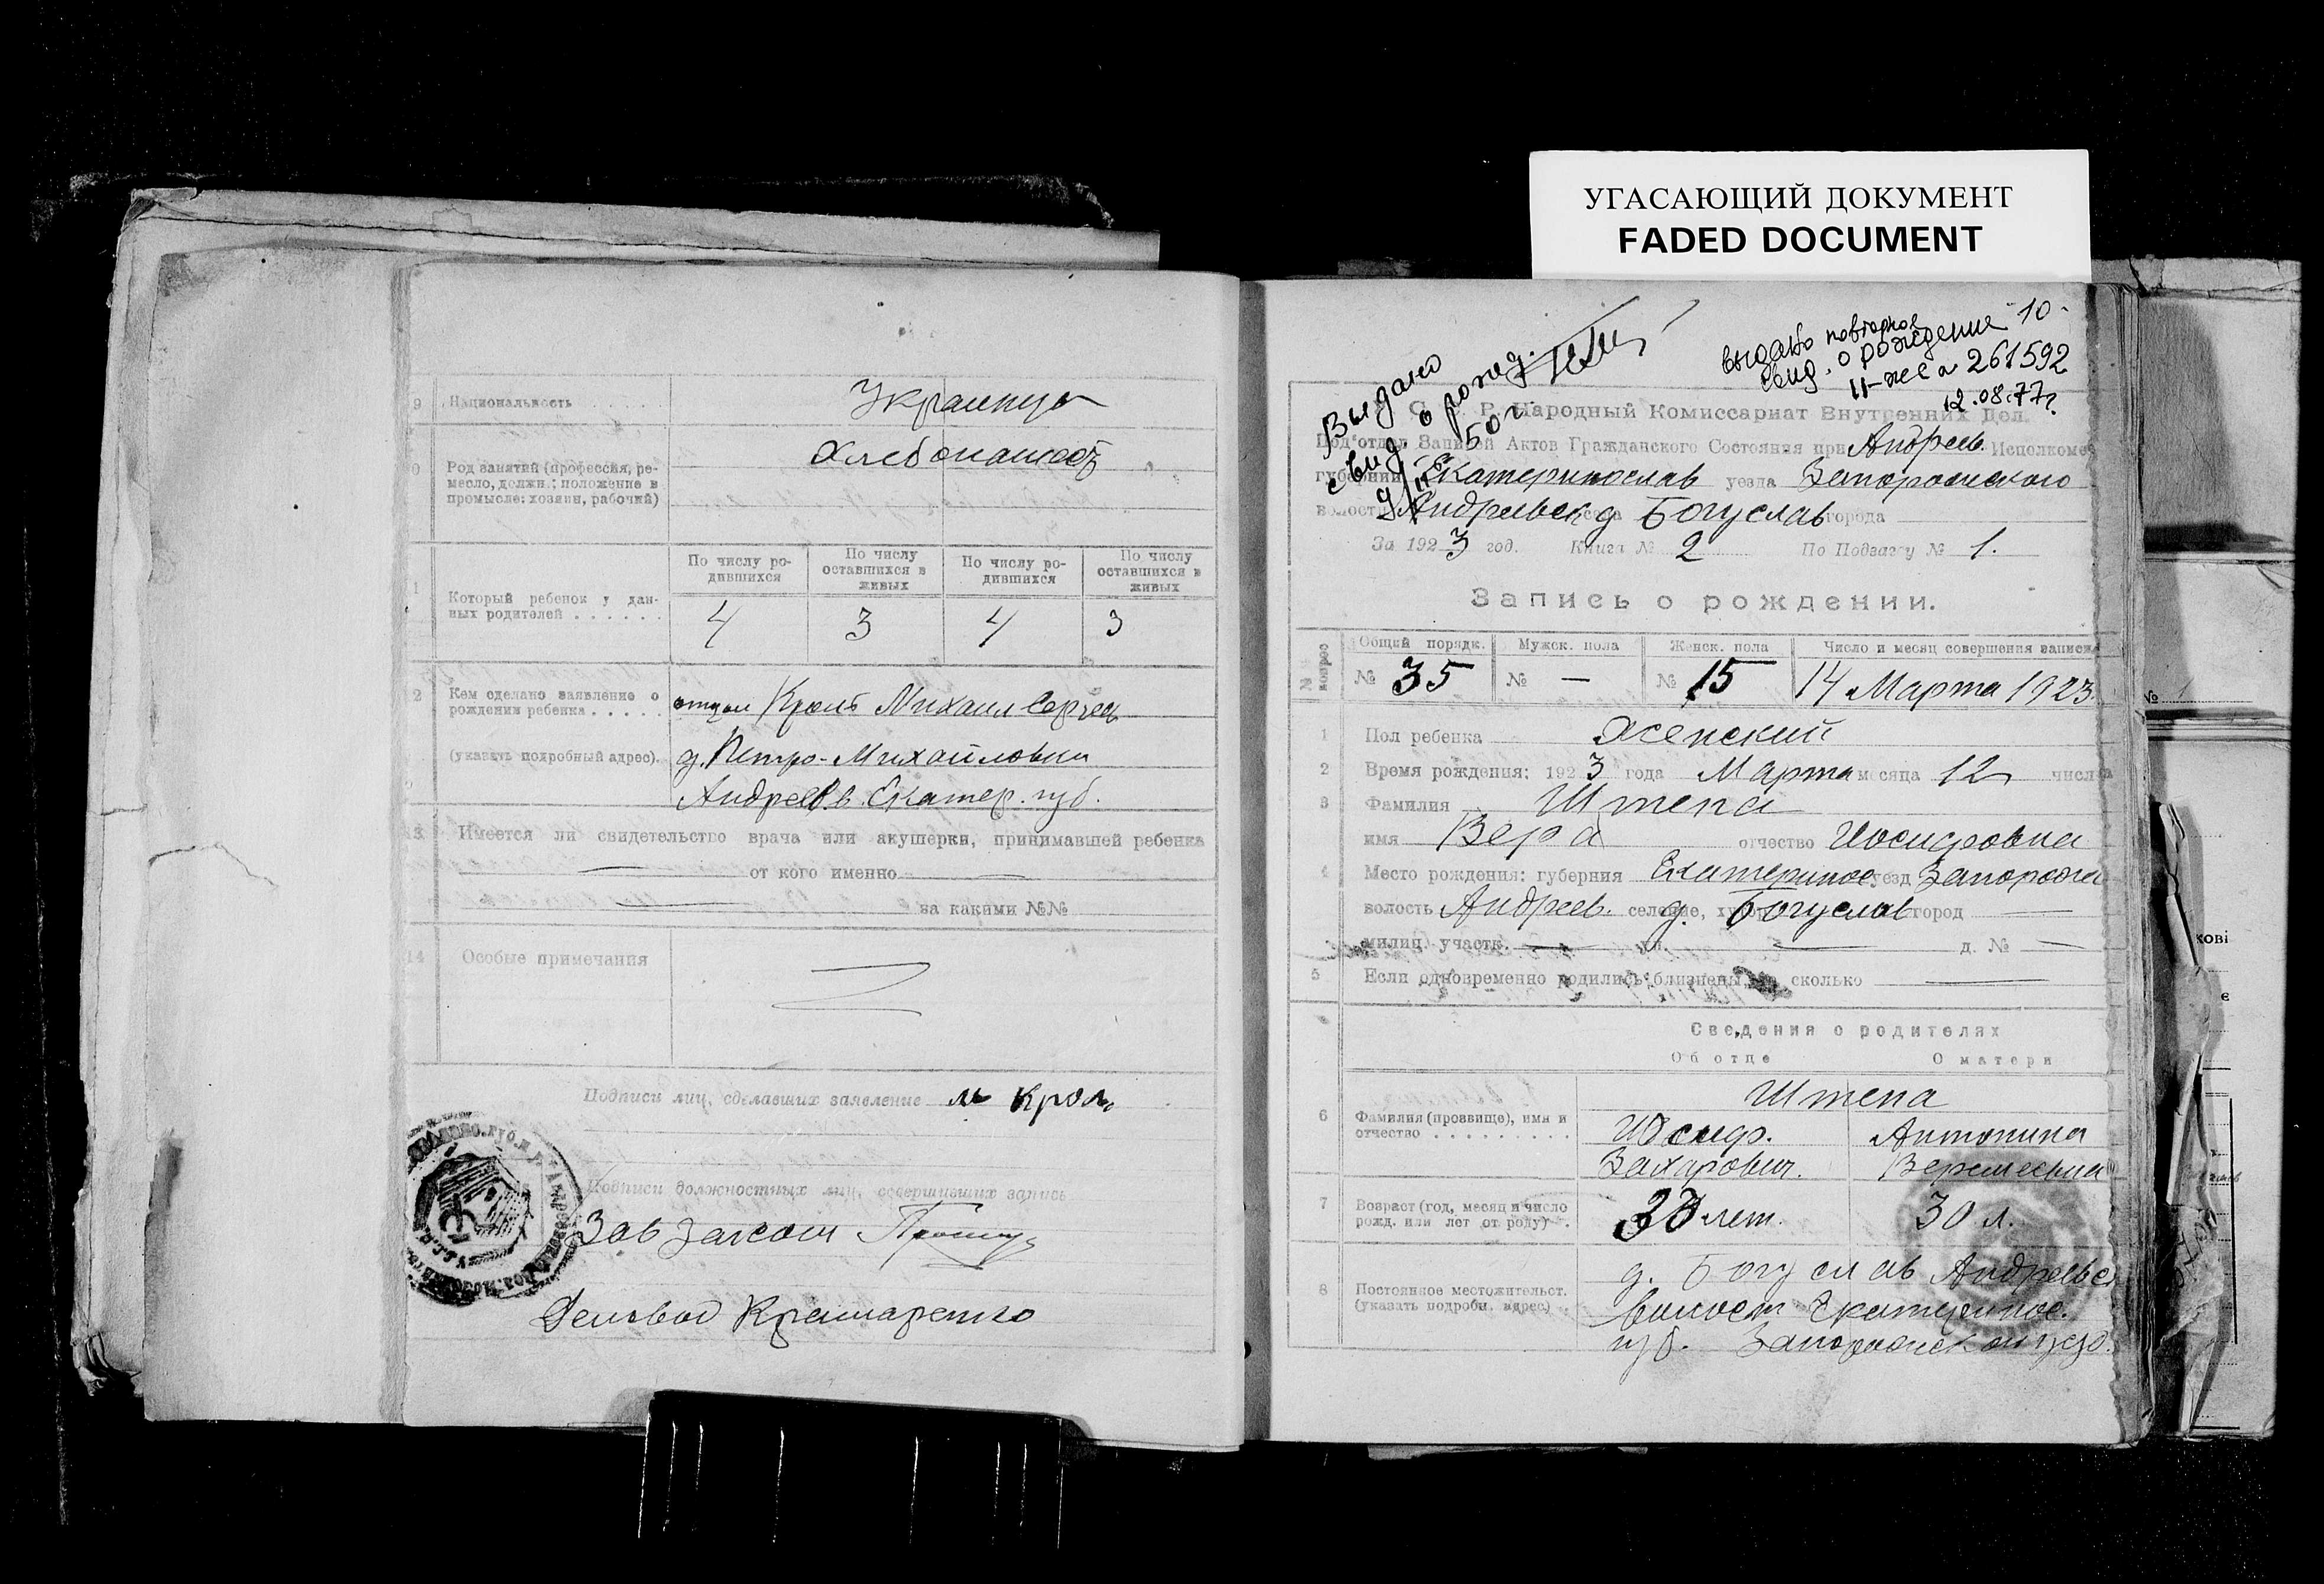 УГАСАЮЩИЙ ДОКУМЕНТ
FADED DOCUMENT
9 Национальность Украинцы
Род занятий (профессия, ре-
месло, должн.; положение в
промысле: хозяин, рабочий)
Хлебопашество
Который ребенок у дан-
ных родителей
По числу ро-
дившихся
По числу
оставшихся в
живых
По числу ро-
дившихся
По числу
оставшихся в
живых
4 3 4 3
2 Кем сделано заявление о
рождении ребенка
(указать подробный адрес).
отцом Кроль Михаил Сергеев
д. Петро-Михайловки
Андреев в. Екатер. губ.
13 Имеется ли свидетельство врача или акушерки, принимавшей ребенка
— от кого именно —
— за какими №№
14 Особые примечания
Подписи лиц, сделавших заявление М Кроль
Подписи должностных лиц, совершивших запись
Зав Загсом
Деловод Крамаренко
Выдано
свид. о рожд.
50 г.
выдано повторное
свид. о рождении 10-
II-ЖС № 261592
12.08.77г.
С. Р. Народный Комиссариат Внутренних Дел.
Под'отдел Записей Актов Гражданского Состояния при Андреев. Исполкоме
губернии Екатеринослав уезда Запорожского
волости Андреевск д Богуслав города
За 1923 год. Книга № 2 По Подзагсу № 1.
Запись о рождении.
Общий порядк. Мужск. пола Женск. пола Число и месяц совершения записи
№ 35 № — № 15 14 Марта 1923
1 Пол ребенка Женский
2 Время рождения: 1923 года Марта месяца 12 числа
3 Фамилия Штепа
имя Вера отчество Иосифовна
4 Место рождения: губерния Екатеринос уезд Запорож
волость Андреев. селение, хутор д. Богуслав город —
милиц. участк. — ул. — д. № —
5 Если одновременно родились близнецы, сколько —
Сведения о родителях
Об отце О матери
6 Фамилия (прозвище), имя и
отчество
Штепа
Иосиф. Антонина
Захарович.
7 Возраст (год, месяц и число
рожд. или лет от роду)
33 лет. 30 л.
8 Постоянное местожительст.
(указать подробн. адрес)
д. Богуслав Андреевс
волост Екатеринос.
губ. Запорожского уезд.